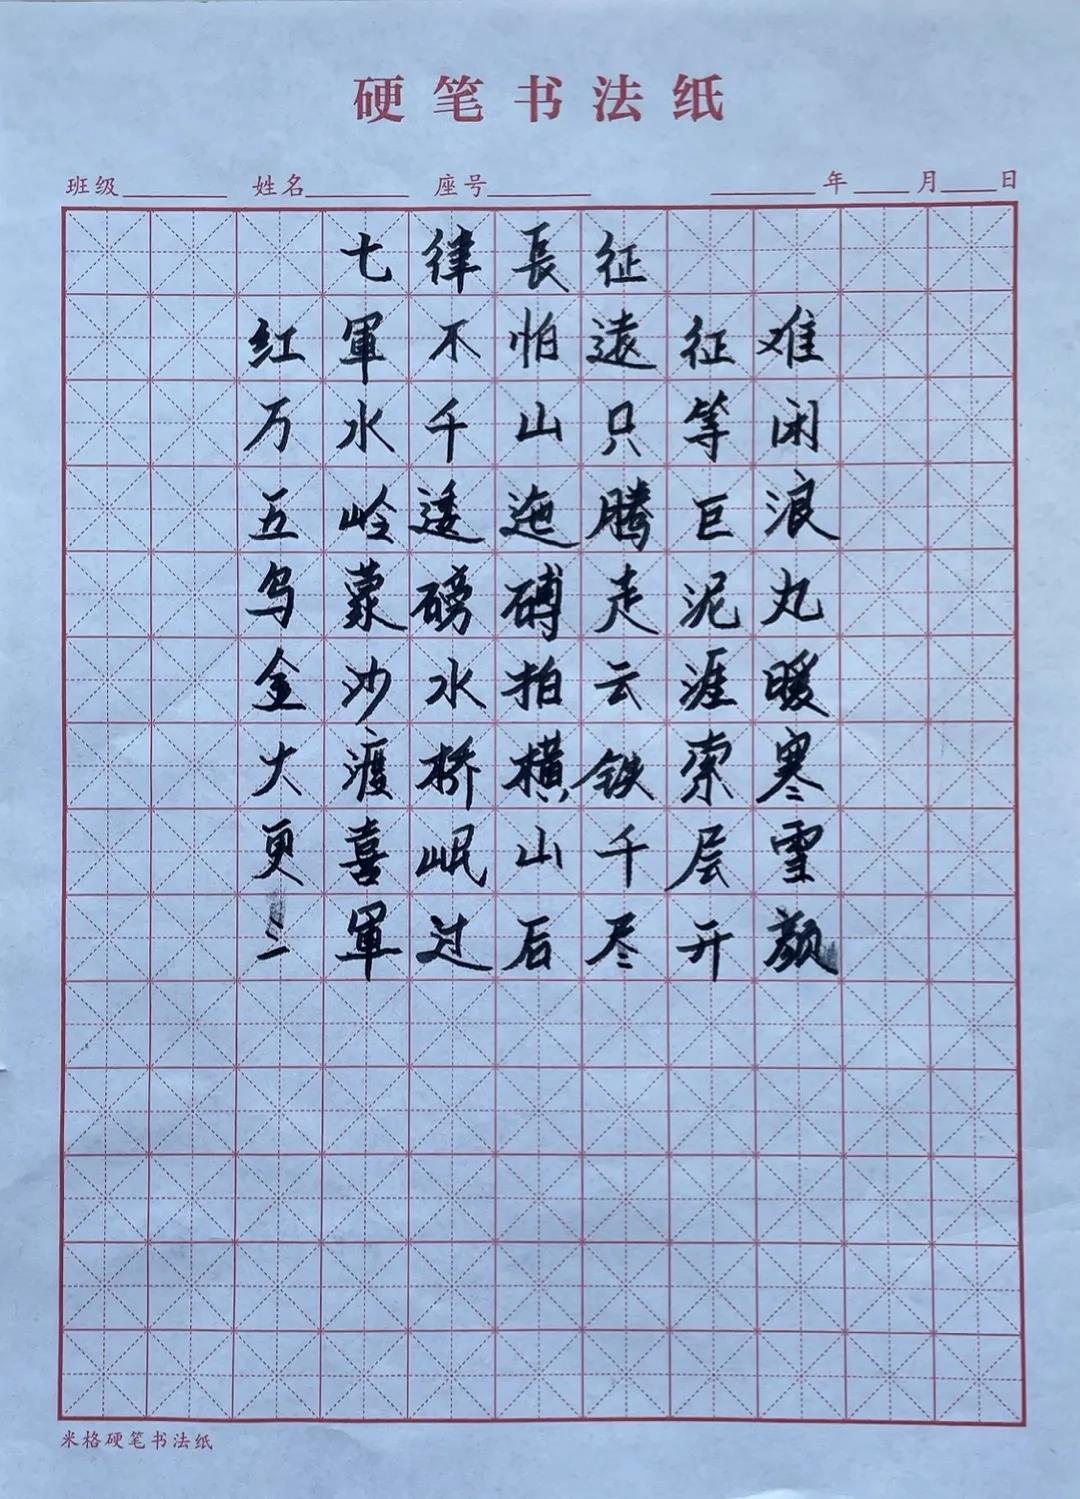 硬笔书法纸
班级 姓名 座号 年 月 日
七律長征
红軍不怕遠征难
万水千山只等闲
五岭逶迤腾巨浪
乌蒙磅礴走泥丸
金沙水拍云涯暖
大渡桥横铁索寒
更喜岷山千层雪
三軍过后尽开颜
米格硬笔书法纸